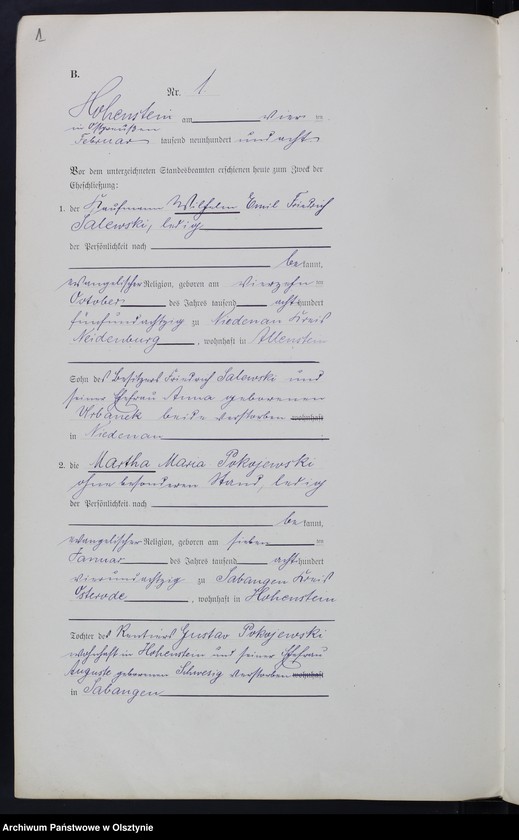 1
B.
Nr. 1
Hohenstein am vier ten
in Ostpreußen
Februar tausend neunhundert und acht
Vor dem unterzeichneten Standesbeamten erschienen heute zum Zweck der
Eheschließung:
1. der Kaufmann Wilhelm Emil Friedrich
Salewski, ledig
der Persönlichkeit nach
be kannt,
evangelischer Religion, geboren am vierzehn ten
October des Jahres tausend acht hundert
fünfundachtzig zu Niedenau Kreis
Neidenburg, wohnhaft in Allenstein
Sohn des Besitzers Friedrich Salewski und
seiner Ehefrau Anna geborenen
Urbanek beide verstorben wohnhaft
in Niedenau.
2. die Martha Maria Pokojewski
ohne besonderen Stand, ledig
der Persönlichkeit nach
be kannt,
evangelischer Religion, geboren am sieben ten
Januar des Jahres tausend acht hundert
vierundachtzig zu Sabangen Kreis
Osterode, wohnhaft in Hohenstein
Tochter des Rentiers Gustav Pokojewski
wohnhaft in Hohenstein und seiner Ehefrau
Auguste geborenen verstorben wohnhaft
in Sabangen
Archiwum Państwowe w Olsztynie